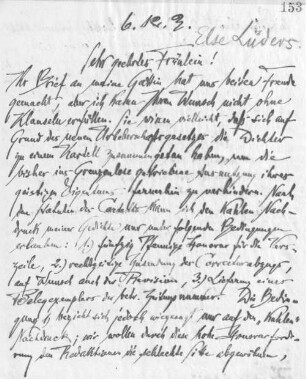 153
6.12.2.
Else Lüders
Sehr geehrtes Fräulein!
Ihr Brief an meine Gattin hat uns beiden Freude
gemacht, aber ich kann Ihren Wunsch nicht ohne
Klauseln erfüllen. Sie wissen vielleicht, daß sich auf
Grund des neuen Urheberrechtsgesetzes die Dichter
zu einem Kartell zusammengetan haben, um die
bisher ins Grenzenlose getriebene Ausnutzung ihres
geistigen Eigentums fernerhin zu verhindern. Nach
den Satzungen des Cartells kann ich den Nach-
druck meiner Gedichte nur unter folgenden Bedingungen
erlauben: 1.) fünfzig Pfennige Honorar für die Vers-
zeile, 2.) rechtzeitige Zusendung der Correcturabzüge,
auf Wunsch auch der Revision, 3.) Lieferung eines
Belegexemplars der betr. Zeitungsnummer. Die Bedin-
gung 1 bezieht sich jedoch nur auf den
Nachdruck; wir wollen durch diese hohe Honorarforde-
rung den Redaktionen die schlechte Sitte abgewöhnen,